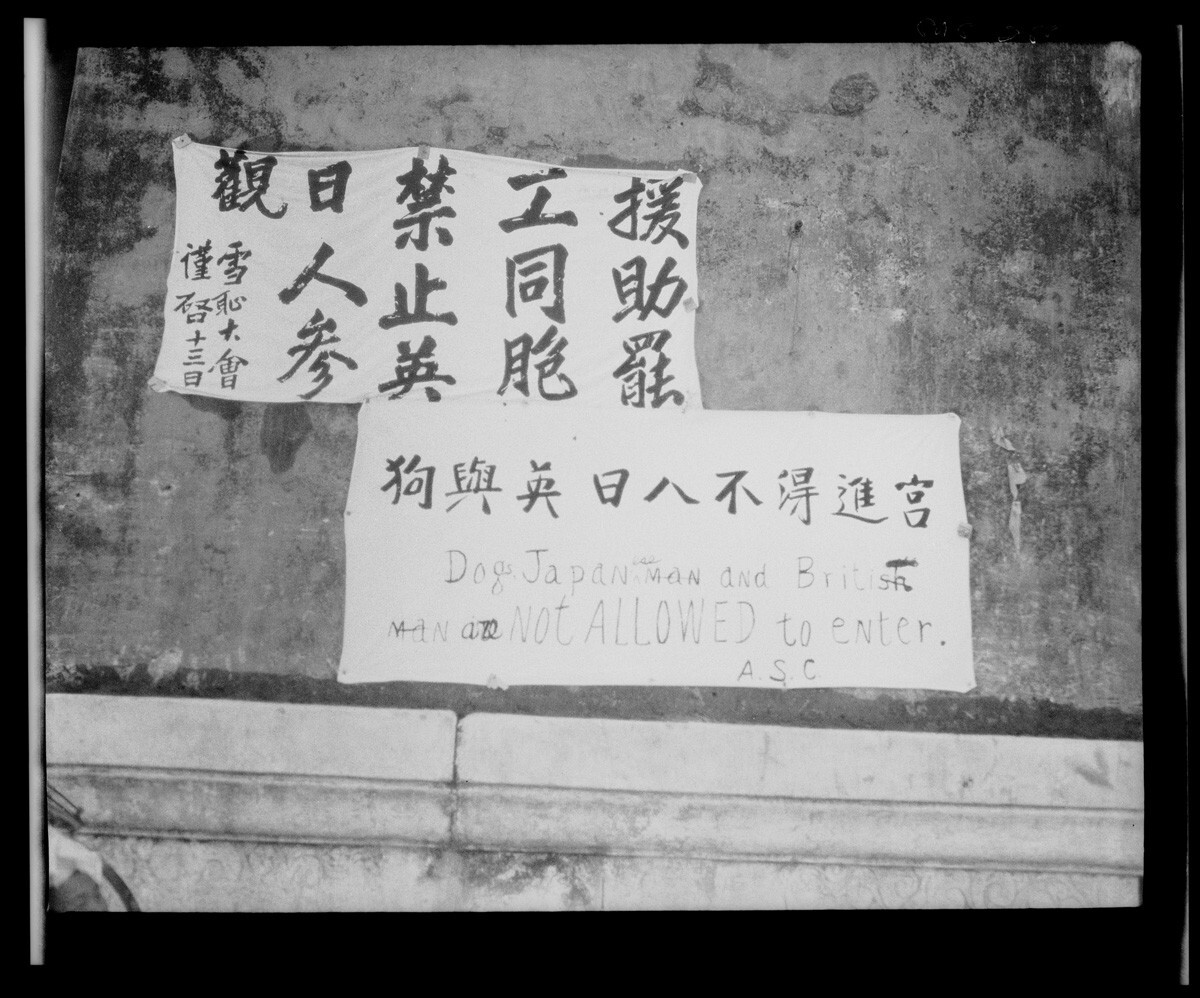 援助罷
工同胞
禁止英
日人參
觀
雪恥大會
謹啓十三日
狗與英日人不得進宮
Dogs, JapaN ese MAN AND British
MAN are NOt ALLOWED to eNter.
A.S.C.